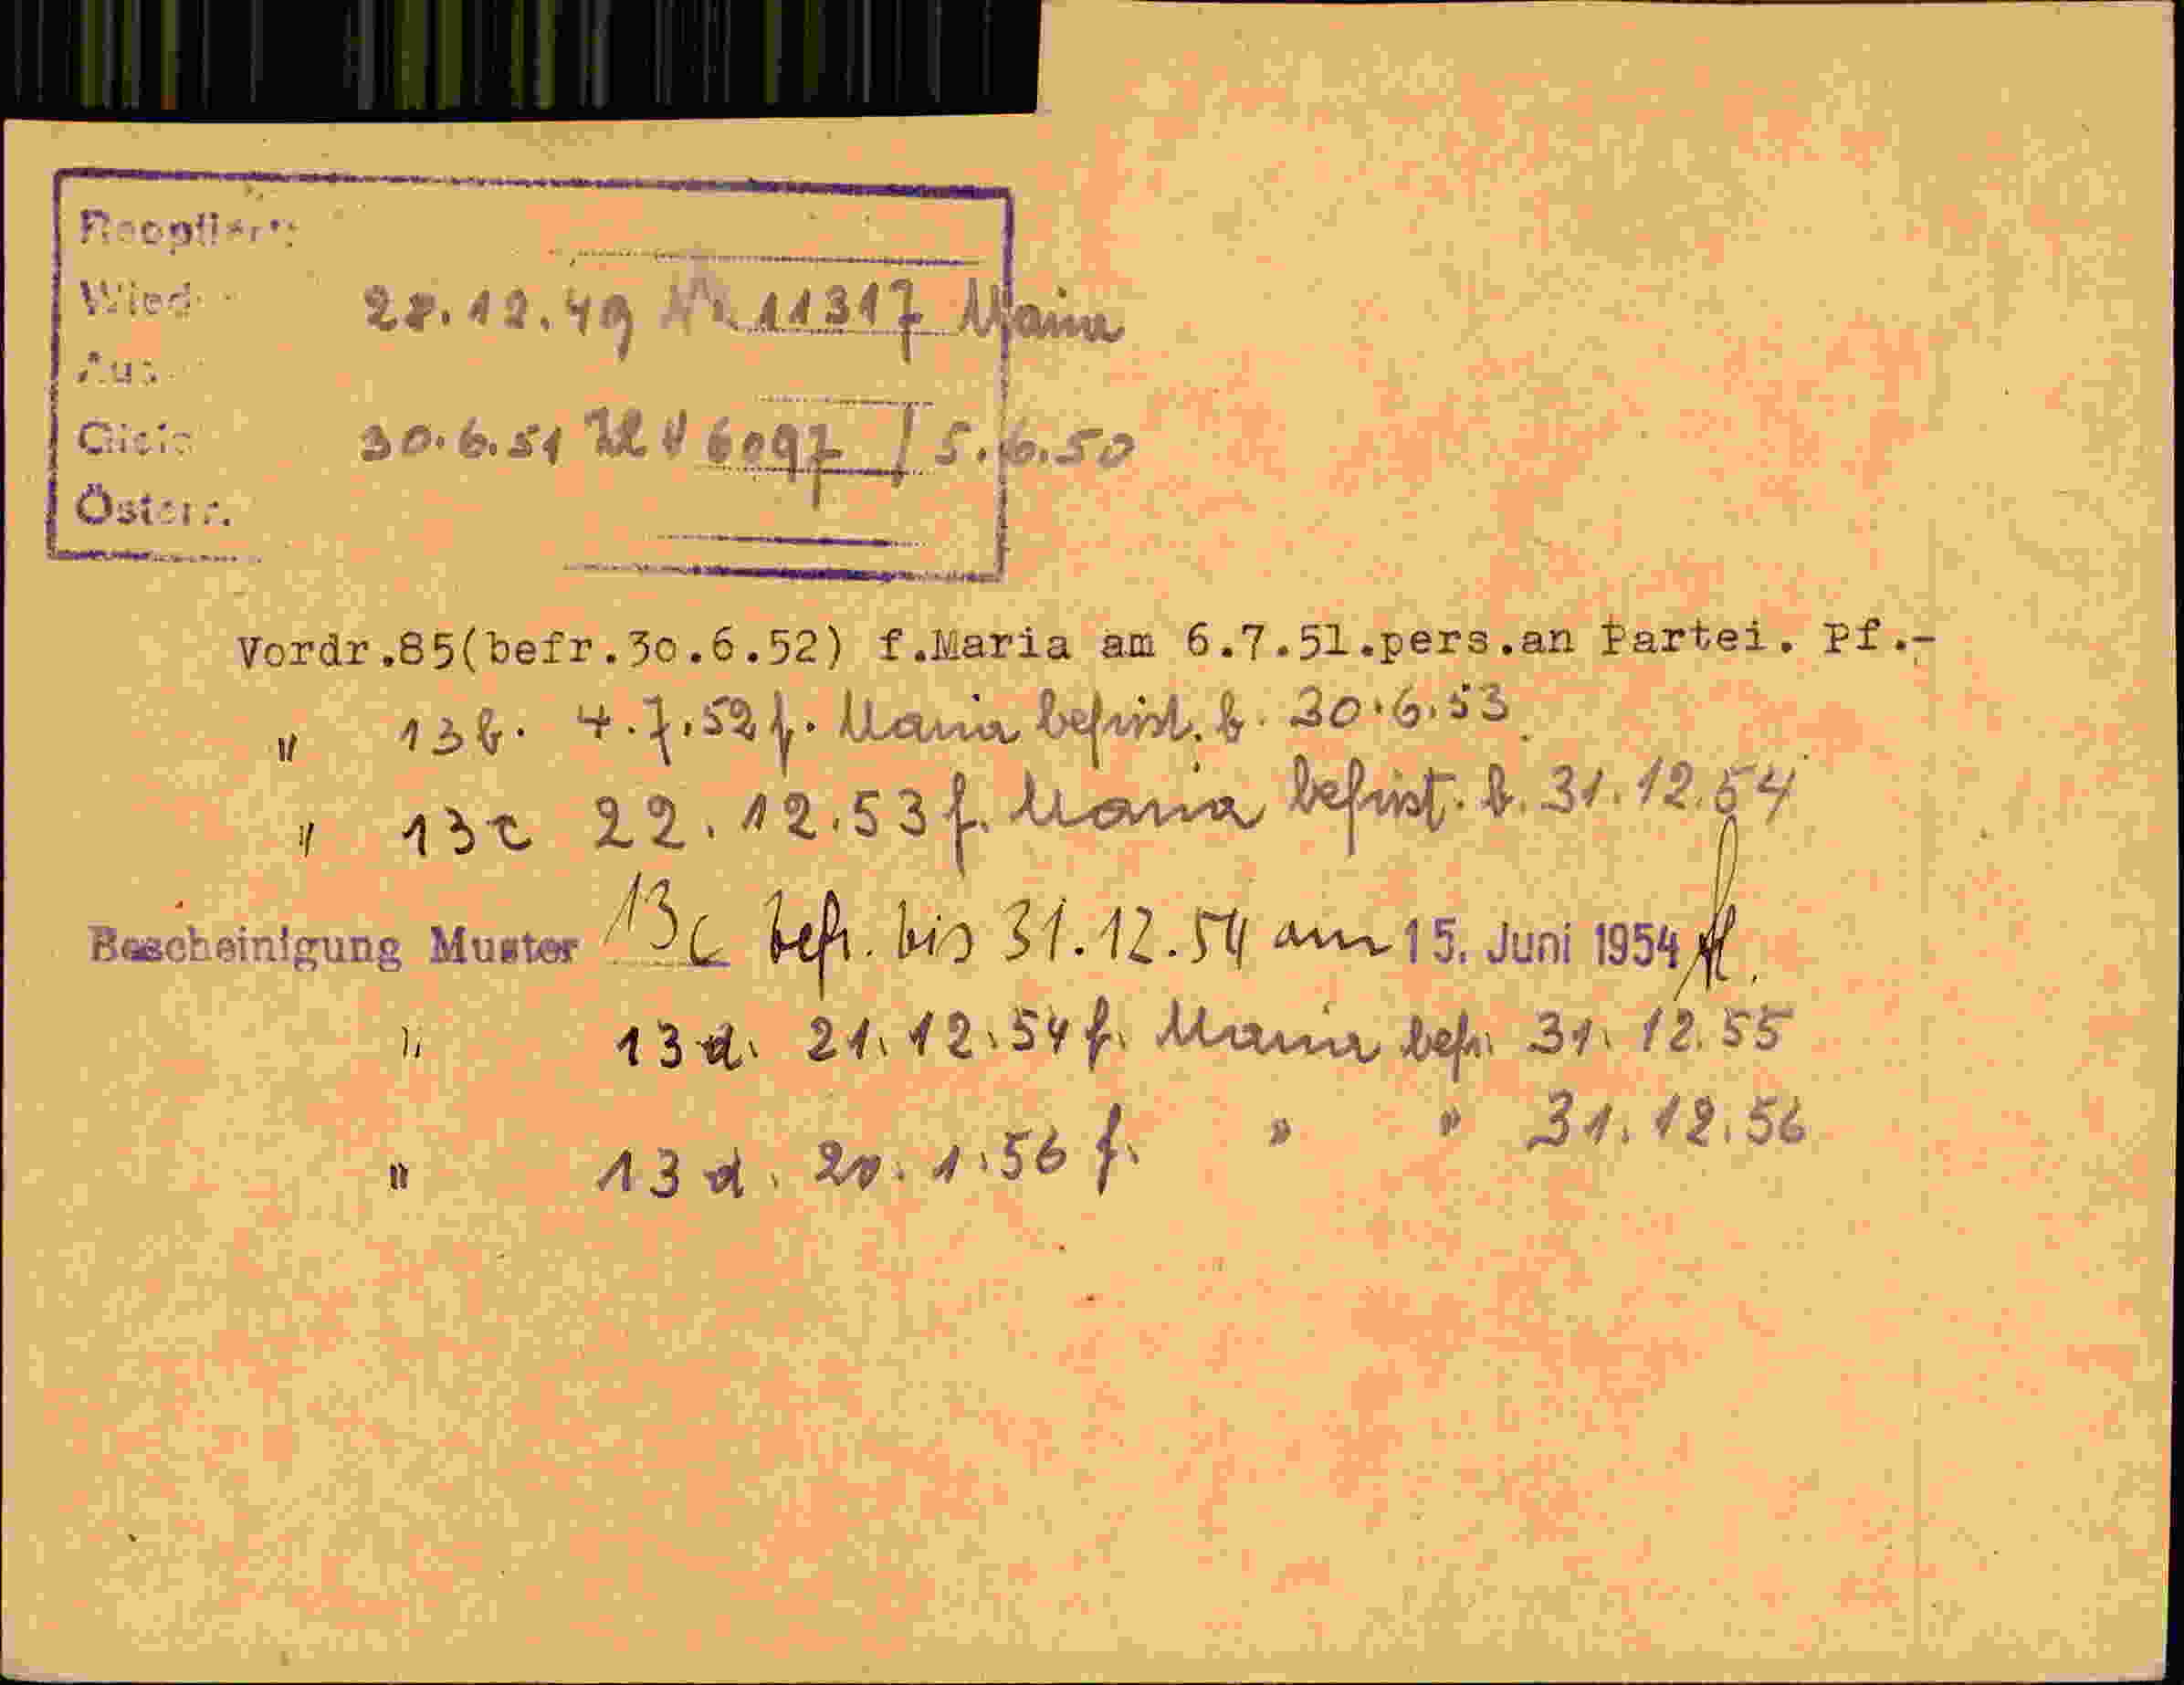 Reoptiert:
Wied. 28.12.49 11317 Maria
Aus
Gleic 30.6.51 6097 / 5.6.50
Österr.
Vordr.85(befr.30.6.52) f.Maria am 6.7.51.pers.an Partei. Pf.-
" 13b. 4.7.52 f. Maria befrist. b. 30.6.53
" 13c 22.12.53 f. Maria befrist. b. 31.12.54
Bescheinigung Muster 13c befr. bis 31.12.54 am 15. Juni 1954
" 13d. 21.12.54 f. Maria befr. 31.12.55
" 13d. 20.1.56 f. " " 31.12.56